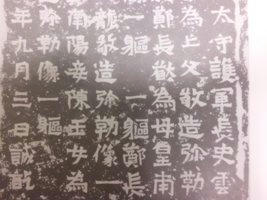 太守護軍長史雲
為亡父敬造弥勒
鄭長猷為母皇甫
一軀鄭長
龍敬造弥勒像一
南陽妾陳玉女為
弥勒像一軀
年九月三日誡訖